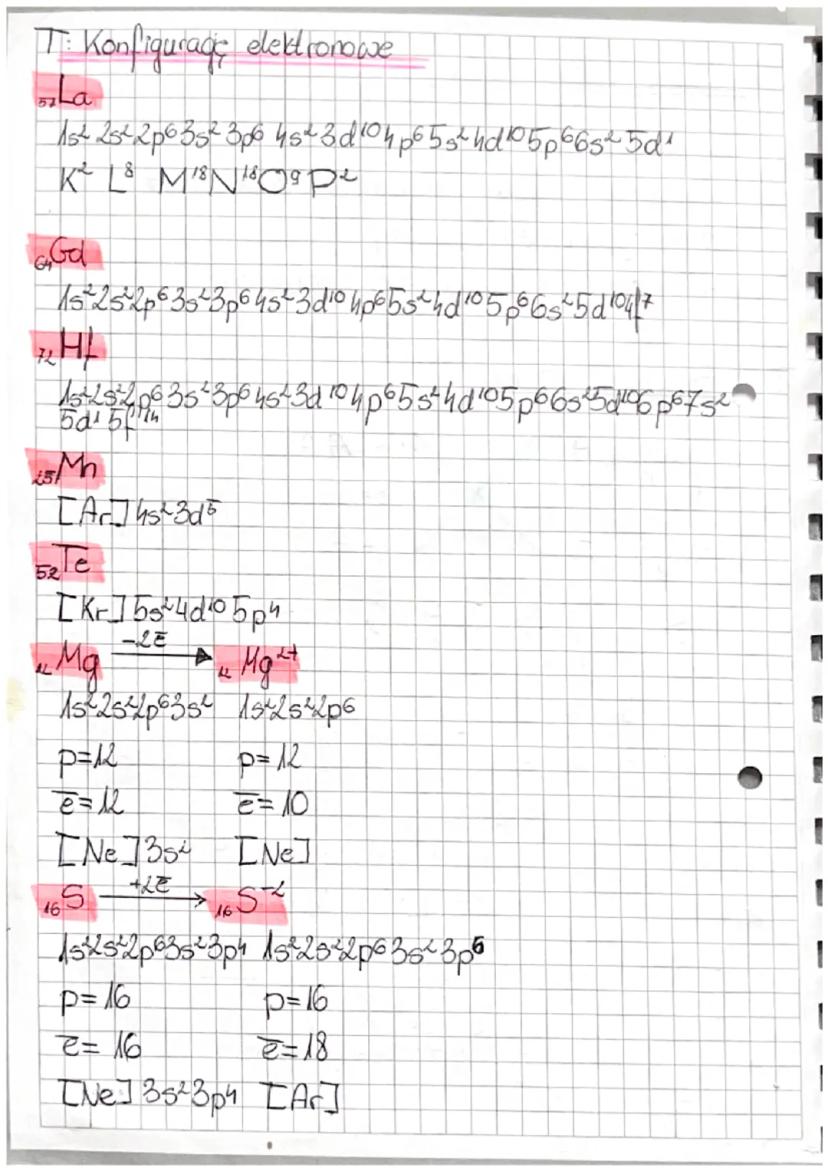 T: Konfiguracje elektronowe
₅₇La
1s² 2s² 2p⁶ 3s² 3p⁶ 4s² 3d¹⁰ 4p⁶ 5s² 4d¹⁰ 5p⁶ 6s² 5d¹
K² L⁸ M¹⁸ N¹⁸ O⁹ P²
₆₄Gd
1s² 2s² 2p⁶ 3s² 3p⁶ 4s² 3d¹⁰ 4p⁶ 5s² 4d¹⁰ 5p⁶ 6s² 5d¹⁰ 4f⁷
₇₂Hf
1s² 2s² 2p⁶ 3s² 3p⁶ 4s² 3d¹⁰ 4p⁶ 5s² 4d¹⁰ 5p⁶ 6s² 5d¹⁰ 6p⁶ 7s²
5d¹ 5f¹⁴
₂₅Mn
[Ar] 4s² 3d⁵
₅₂Te
[Kr] 5s² 4d¹⁰ 5p⁴
₁₂Mg -2e̅ → ₁₂Mg²⁺
1s² 2s² 2p⁶ 3s² 1s² 2s² 2p⁶
p=12 p=12
e̅=12 e̅=10
[Ne] 3s² [Ne]
₁₆S +2e̅ → ₁₆S⁻²
1s² 2s² 2p⁶ 3s² 3p⁴ 1s² 2s² 2p⁶ 3s² 3p⁶
p=16 p=16
e̅=16 e̅=18
[Ne] 3s² 3p⁴ [Ar]